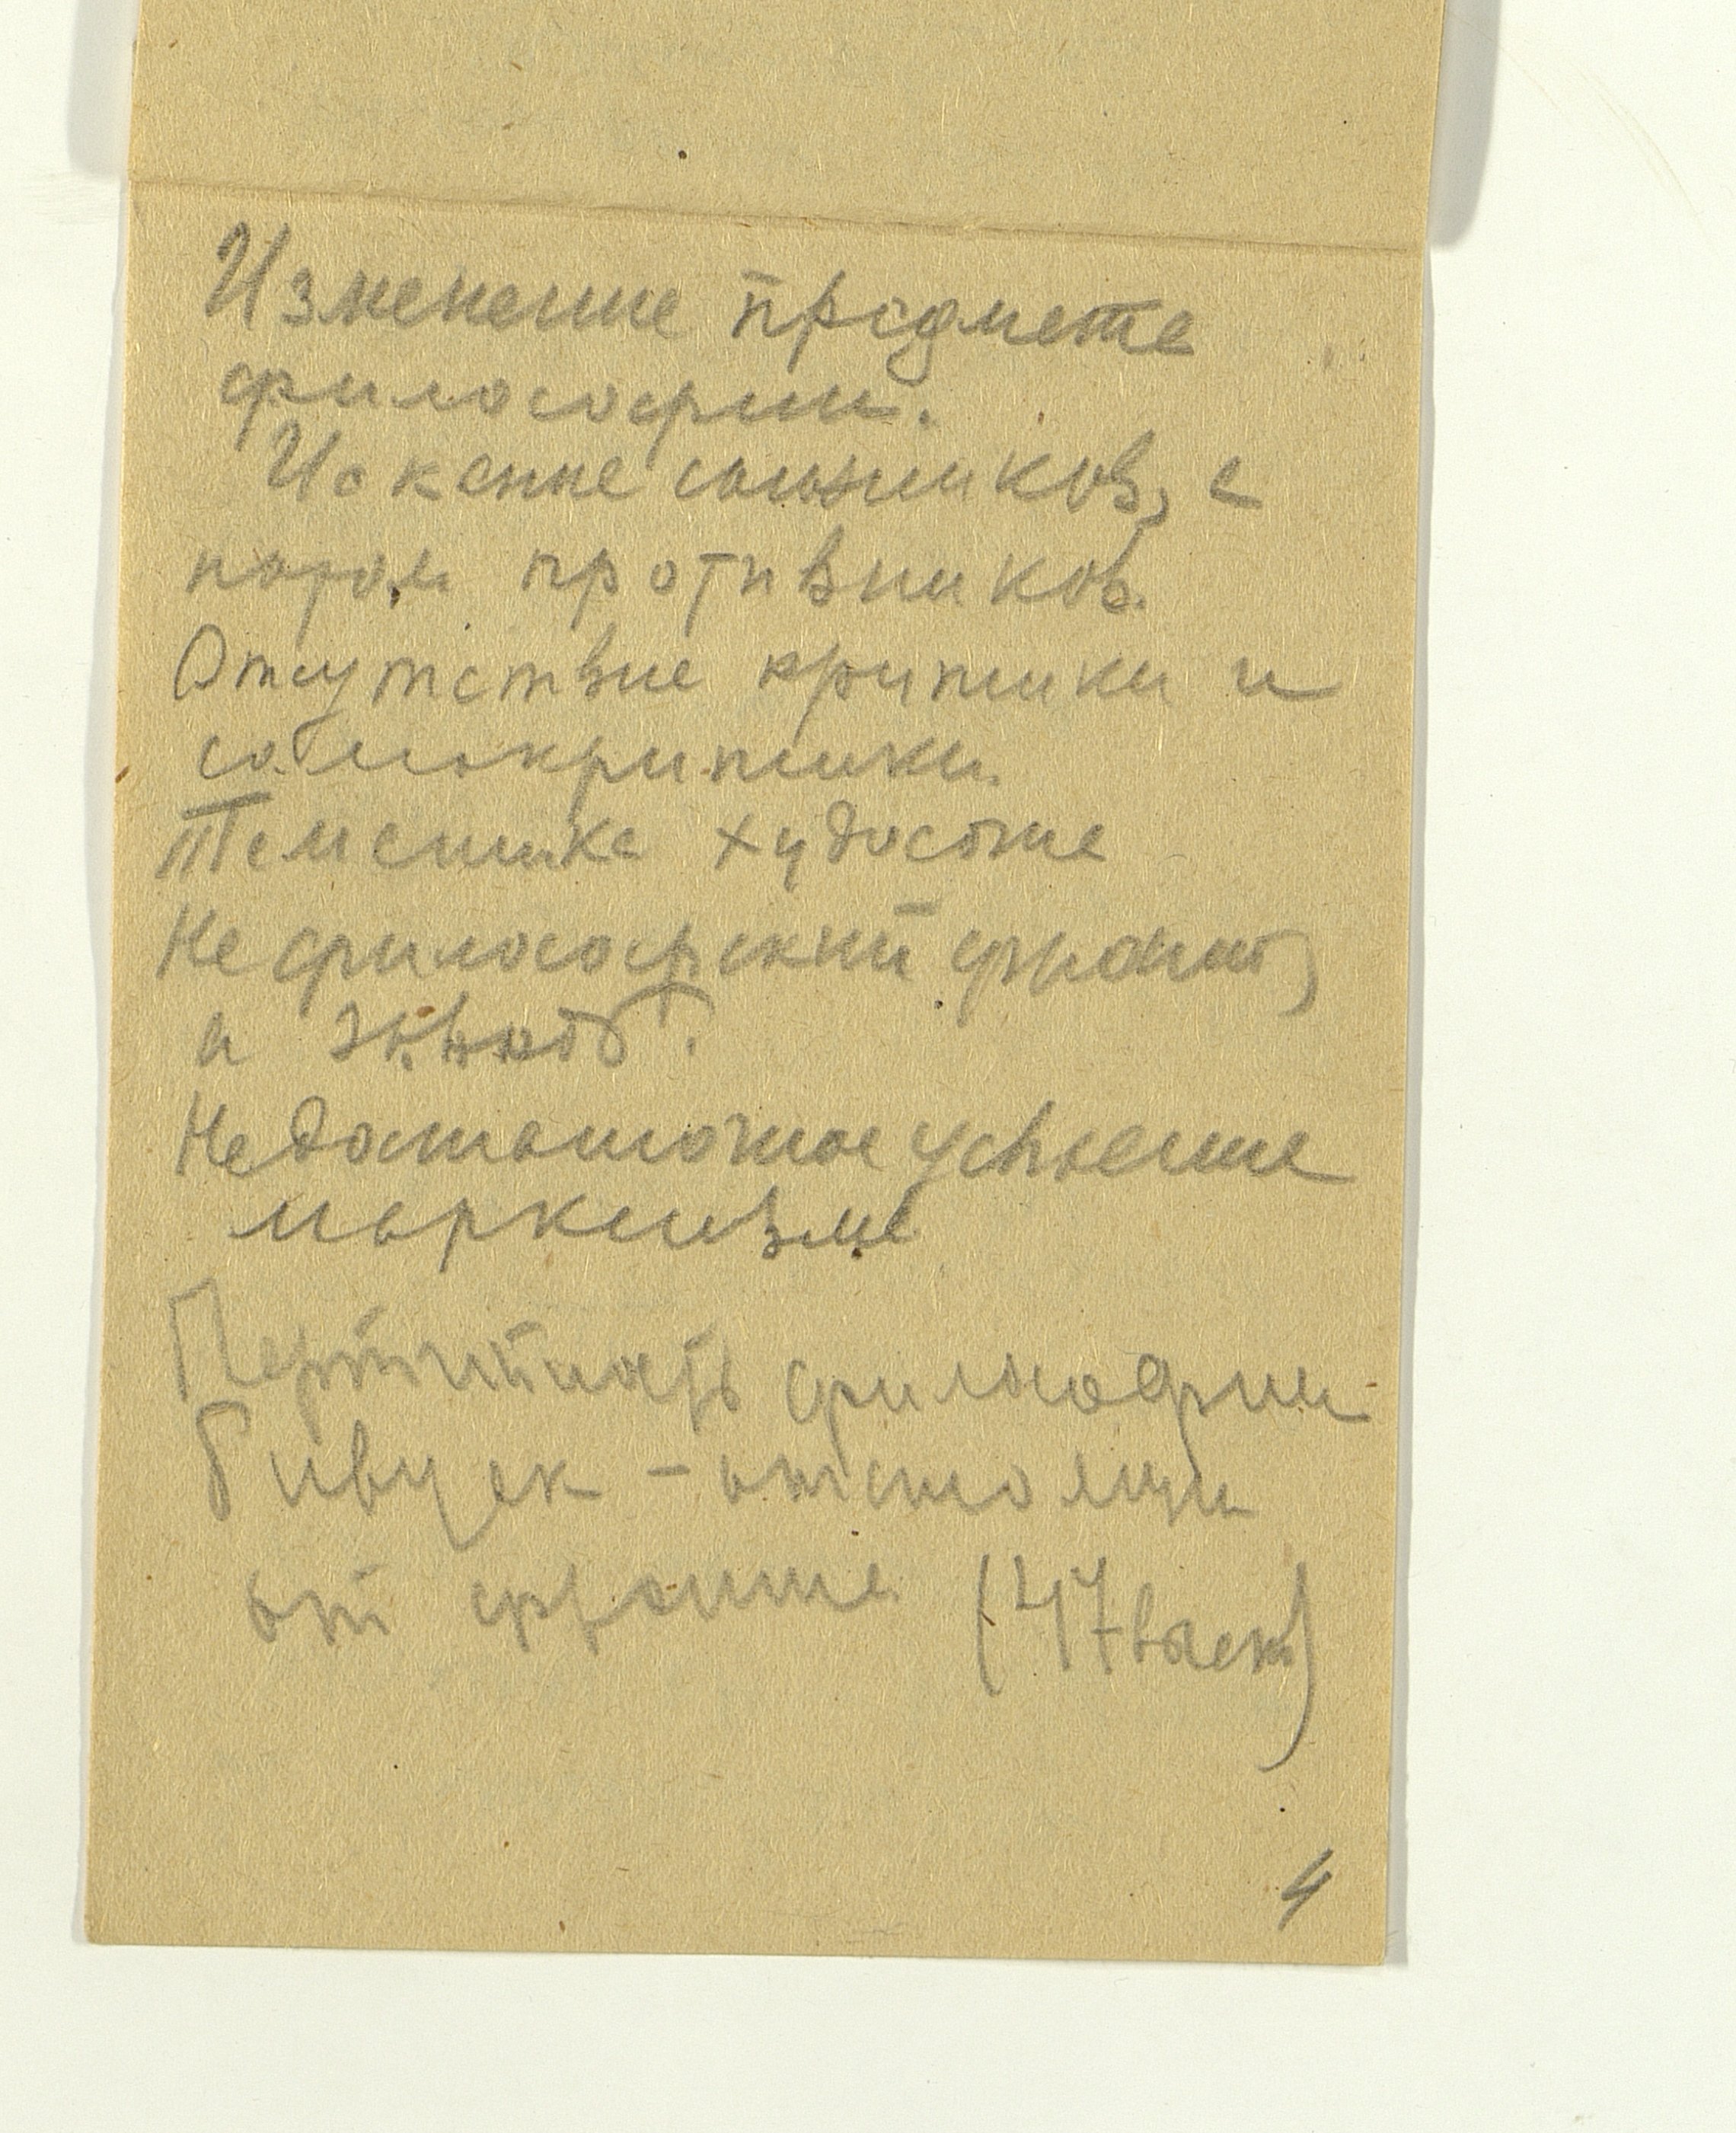 Изменение предмета
философии.
Искание союзников, а
потом противников.
Отсутствие критики и
самокритики.
Тематика худосочна
Не философский фронт,
а
Недостаточное усвоение
марксизма
Партийность философии
Бивуак - отстоящи
от фронта (47
4